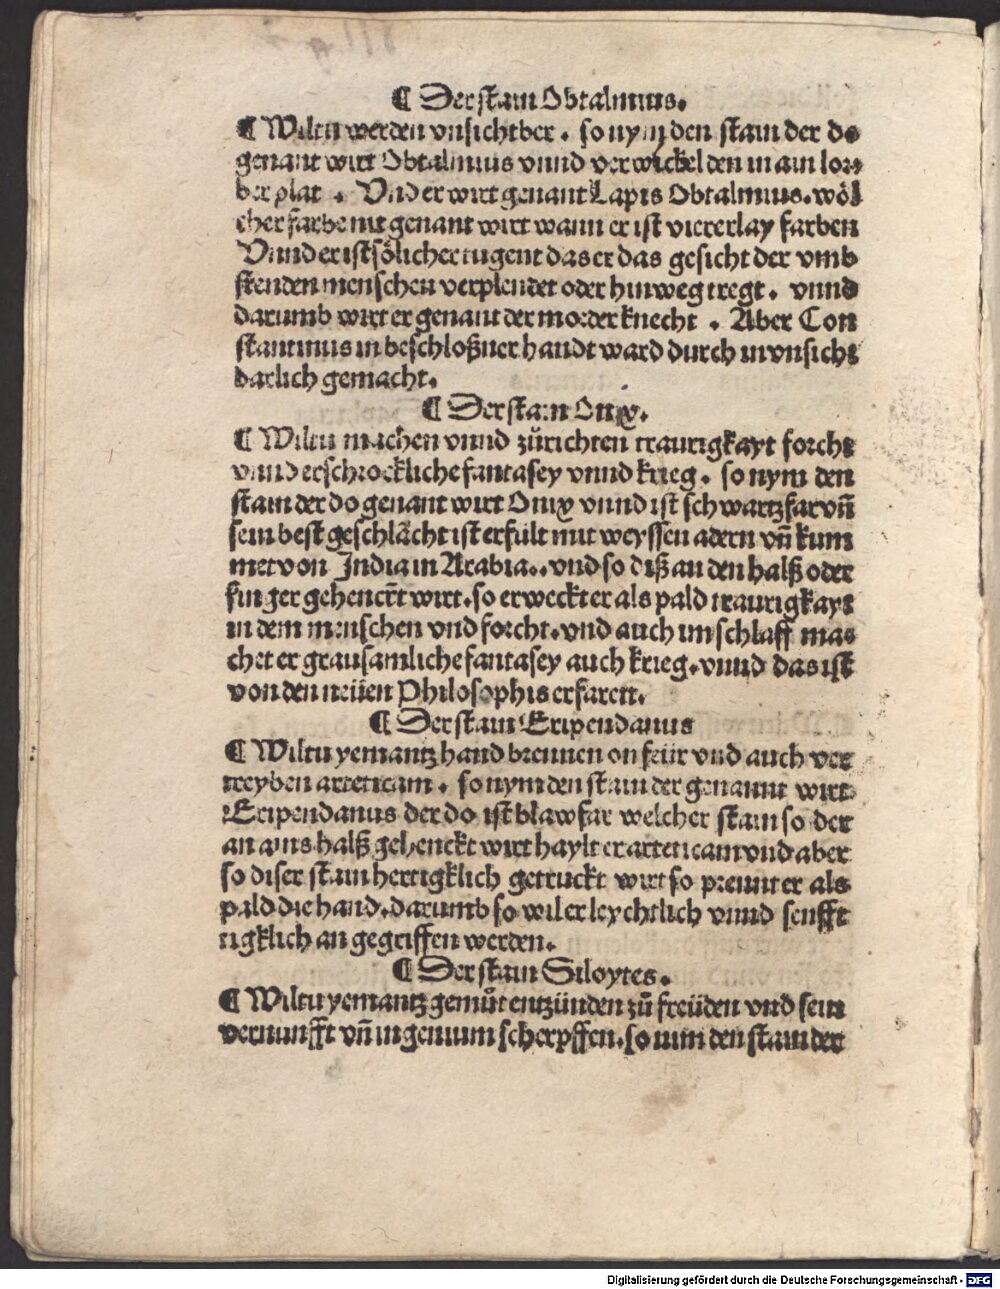 ¶ Der stain Obtalmius.
¶ Wiltu werden vnsichtber. so nym den stain der do
genant wirt Obtalmius vnnd verwickel den in ain lor⸗
ber plat. Vnd er wirt genant Lapis Obtalmius. wöl
cher farbe nit genant wirt wann er ist viererlay farben
Vnnd er ist sölicher tugent das er das gesicht der vmb
stenden menschen verplendet oder hinweg tregt. vnnd
darumb wirt er genant der morder knecht. Aber Con
stantinus in beschloßner handt ward durch in vnsicht
barlich gemacht.
¶ Der stain Onix.
¶ Wiltu machen vnnd zůrichten traurigkayt forcht
vnnd erschrockliche fantasey vnnd krieg. so nym den
stain der do genant wirt Onix vnnd ist schwartzfar vn̄
sein best geschlächt ist erfült mit weyssen adern vn̄ kum
met von India in Arabia.. vnd so diß an den halß oder
finger gehenckt wirt. so erweckt er als pald traurigkayt
in dem menschen vnd forcht. vnd auch im schlaff ma⸗
chet er grausamliche fantasey auch krieg. vnnd das ist
von den neüen Philosophis erfaren.
¶ Der stain Eripendanus
¶ Wiltu yemantz hand brennen on feür vnd auch ver
treyben arteticam. so nym den stain der genannt wirt
Eripendanus der do ist blawfar welcher stain so der
an ains halß gehenckt wirt haylt er arteticam vnd aber
so diser stain hertigklich getruckt wirt so prennt er als
pald die hand. darumb so wil er leychtlich vnnd senfft
tigklich an gegriffen werden.
¶ Der stain Siloytes.
¶ Wiltu yemantz gemůt entzünden zů freüden vnd sein
vernunfft vn̄ ingenium scherpffen. so nim den stain der
Digitalisierung gefördert durch die Deutsche Forschungsgemeinschaft - DFG